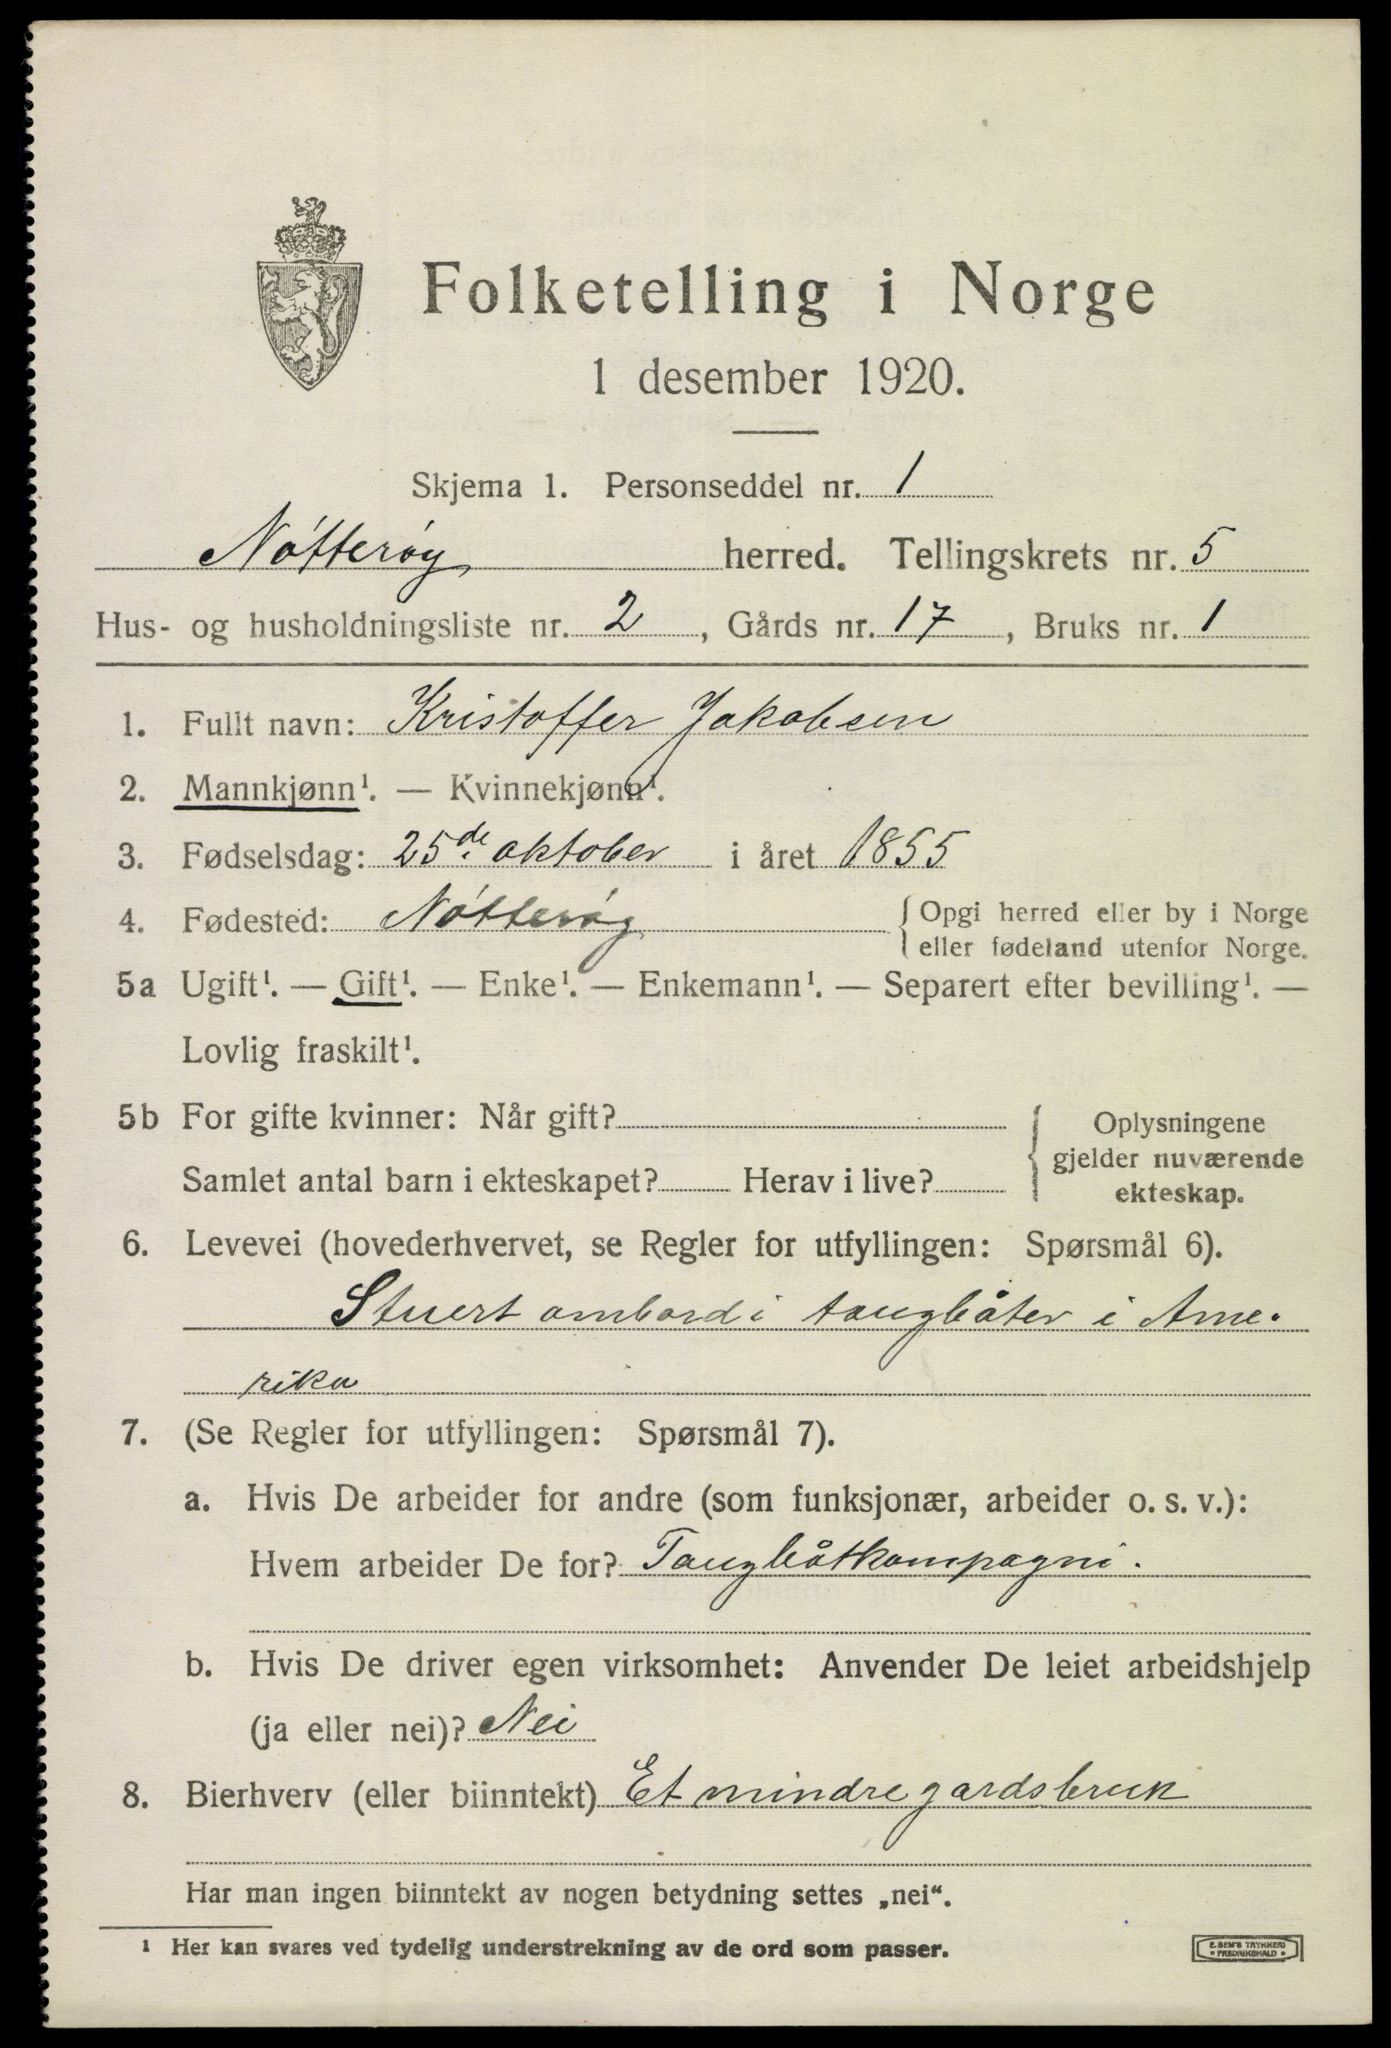 Folketelling i Norge
1 desember 1920.
Skjema 1. Personseddel nr. 1
Nøtterøy herred. Tellingskrets nr. 5
Hus- og husholdningsliste nr. 2, Gårds nr. 17, Bruks nr. 1
1. Fullt navn: Kristoffer Jakobsen
2. Mannkjønn¹. — Kvinnekjønn¹.
3. Fødselsdag: 25de oktober i året 1855
4. Fødested: Nøtterøy { Opgi herred eller by i Norge
eller fødeland utenfor Norge.
5a Ugift¹. — Gift¹. — Enke¹. — Enkemann¹. — Separert efter bevilling¹. —
Lovlig fraskilt¹.
5b For gifte kvinner: Når gift?
Samlet antal barn i ekteskapet? Herav i live?
Oplysningene
gjelder nuværende
ekteskap.
6. Levevei (hovederhvervet, se Regler for utfyllingen: Spørsmål 6).
Stuert ombord i taugbåter i Ame-
rika
7. (Se Regler for utfyllingen: Spørsmål 7).
a. Hvis De arbeider for andre (som funksjonær, arbeider o. s. v.):
Hvem arbeider De for? Taugbåtkompagni.
b. Hvis De driver egen virksomhet: Anvender De leiet arbeidshjelp
(ja eller nei)? Nei
8. Bierhverv (eller biinntekt) Et mindre gardsbruk
Har man ingen biinntekt av nogen betydning settes „nei“.
¹ Her kan svares ved tydelig understrekning av de ord som passer.
E. SEM'S TRYKKERI
FREDRIKSHALD